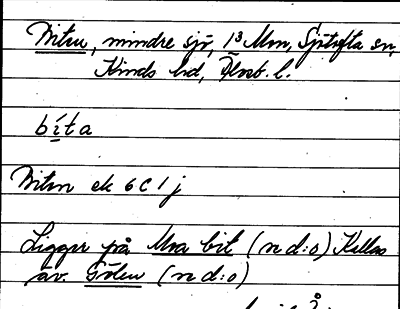 Bitsn, mindre sjö, 13 Mon, Sjötofta sn,
Kinds hd, Älvsb. l.
bíta
Bitsn ek 6 C 1 j
Ligger på Moa bit (n d:o) Kallas
äv. Gölen (n d:o)